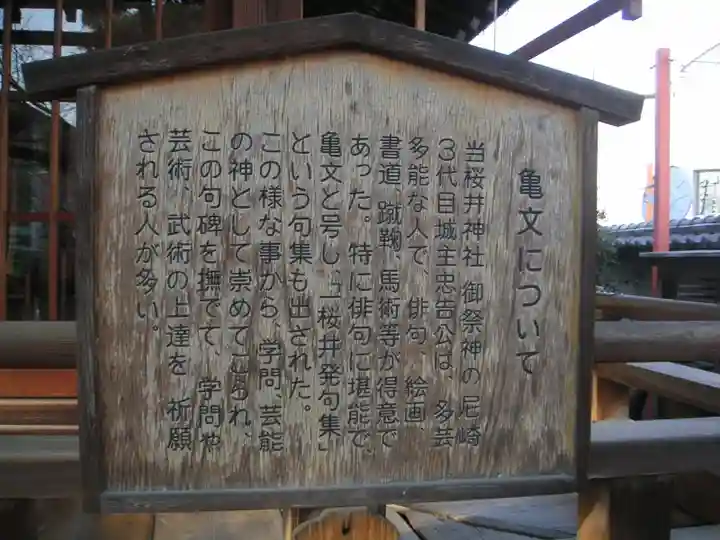 亀文について
当桜井神社 御祭神の 尼崎
3代目城主忠告公は、多芸
多能な人で、俳句、絵画、
書道、蹴鞠、馬術等が得意で
あった。特に俳句に堪能で、
亀文と号し、「桜井発句集」
という句集も出された。
この様な事から、学問、芸能
の神として崇めてこられ、
この句碑を撫でて、学問や
芸術、武術の上達を 祈願
される人が多い。